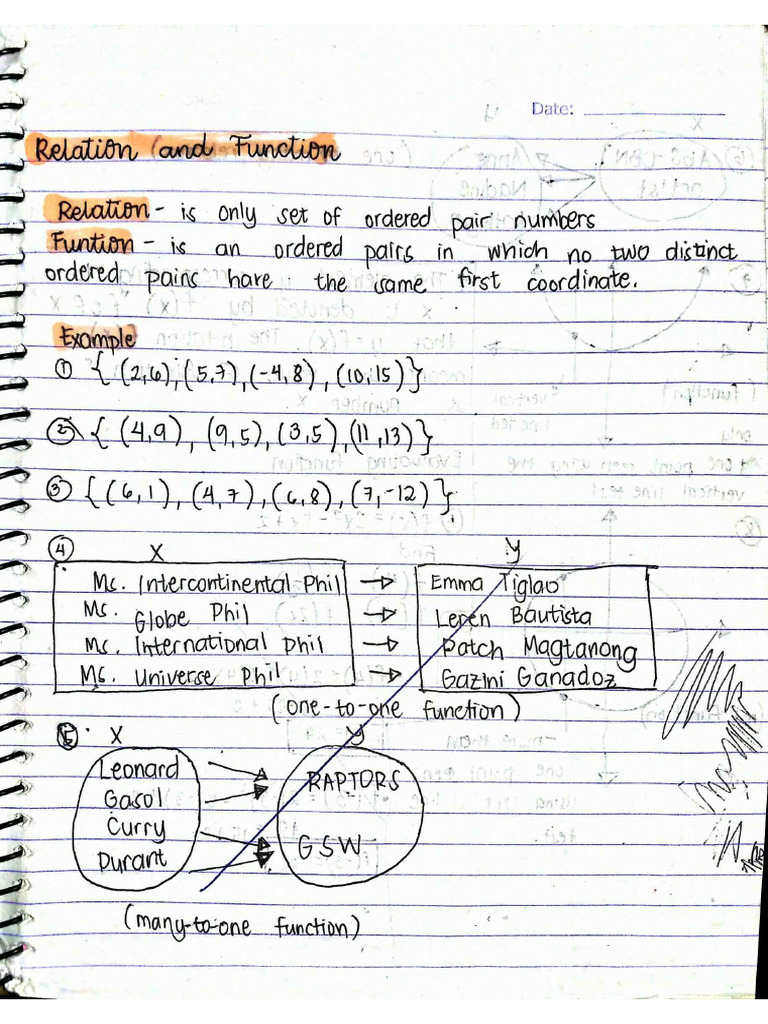 Date:
Relation and Function
Relation - is only set of ordered pair numbers
Funtion - is an ordered pairs in which no two distinct
ordered pains have the same first coordinate.
Example
① { (2,6), (5,7), (-4,8), (10,15) }
② { (4,9), (9,5), (3,5), (11,13) }
③ { (6,1), (4,7), (6,8), (7,-12) }
④ X y
Ms. Intercontinental Phil → Emma Tiglao
Ms. Globe Phil → Leren Bautista
Ms. International Phil → Patch Magtanong
Ms. Universe Phil → Gazini Ganadoz
(one-to-one function)
⑤ X y
Leonard
Gasol RAPTORS
Curry
Durant GSW
(many-to-one function)